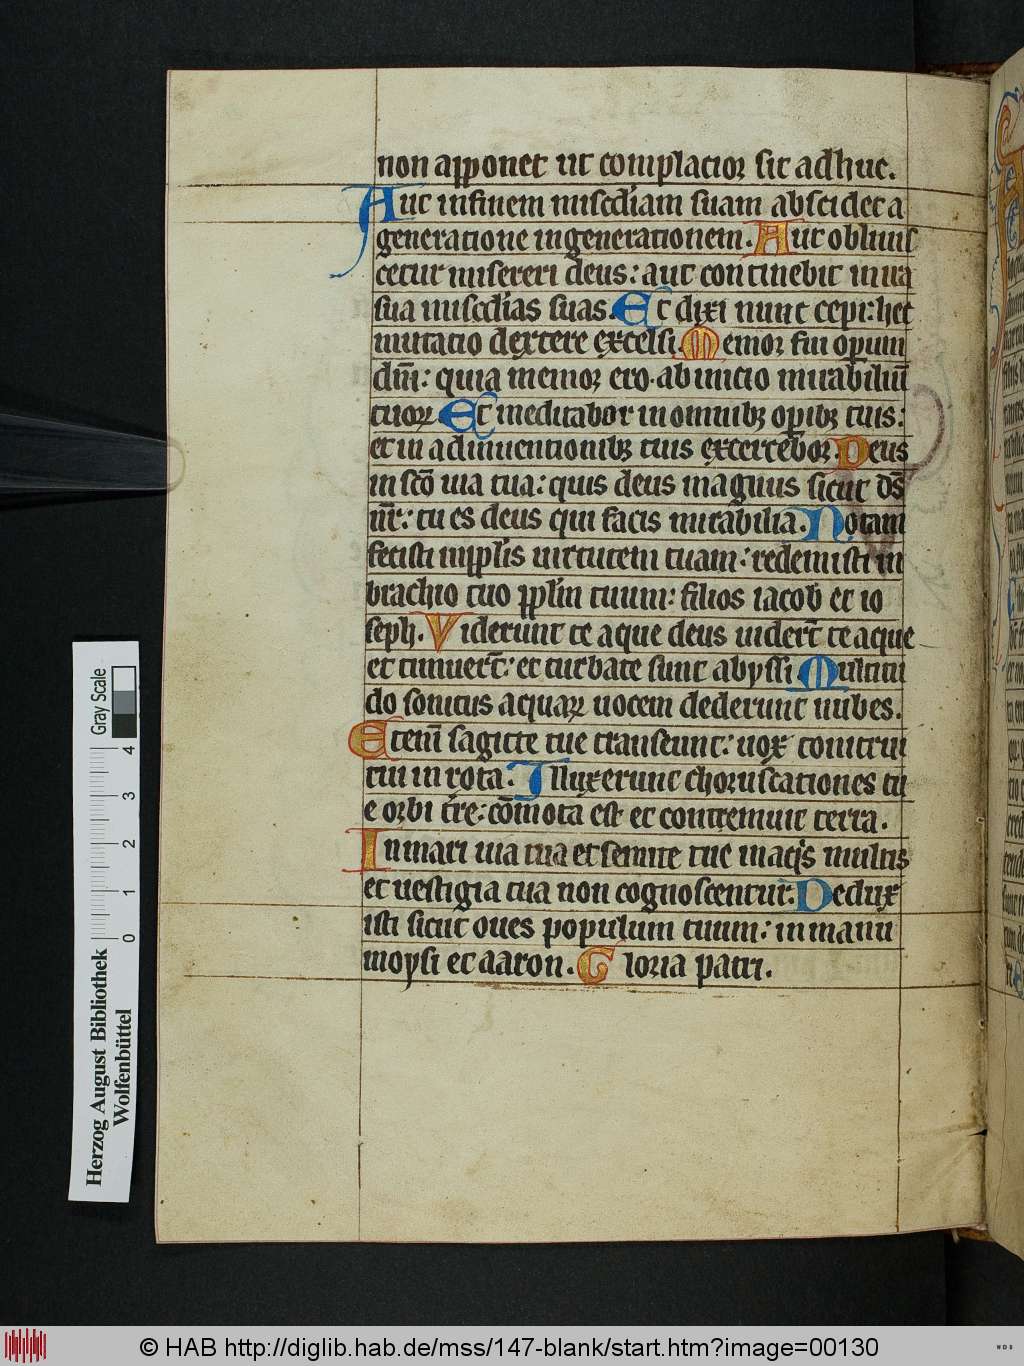 non apponet ut complacior sit adhuc.
Aut in finem miscdiam suam abscidet a
generatione in generationem. Aut obliuis
cetur misereri deus: aut continebit in ira
sua miscdias suas. Et dixi nunc cepi: hec
mutatio dextere excelsi. Memor fui operum
dni: quia memor ero. ab inicio mirabiliū
tuoꝝ Et meditabor in omnibꝫ opibꝫ tuis:
et in adinuentionibꝫ tuis exercebor. Deus
in scō uia tua: quis deus magnus sicut ds̄
nr̄: tu es deus qui facis mirabilia. Notam
fecisti in pplis uirtutem tuam: redemisti in
brachio tuo pplm tuum: filios iacob et io
seph. Viderunt te aque deus uiderᵗ te aque
et timuerᵗ: et turbate sunt abyssi. Multitu
do sonitus aquaꝝ uocem dederunt nubes.
Eteni sagitte tue transeunt: uox tonitrui
tui in rota. Illuxerunt choruscationes tu
e orbi tre: cōmota est et contremuit terra.
In mari uia tua et semite tue in aqis multis
et uestigia tua non cognoscentur. Dedux
isti sicut oues populum tuum: in manu
moysi et aaron. Gloria patri.
Herzog August Bibliothek
Wolfenbüttel
0 1 2 3 4
Gray Scale
© HAB http://diglib.hab.de/mss/147-blank/start.htm?image=00130